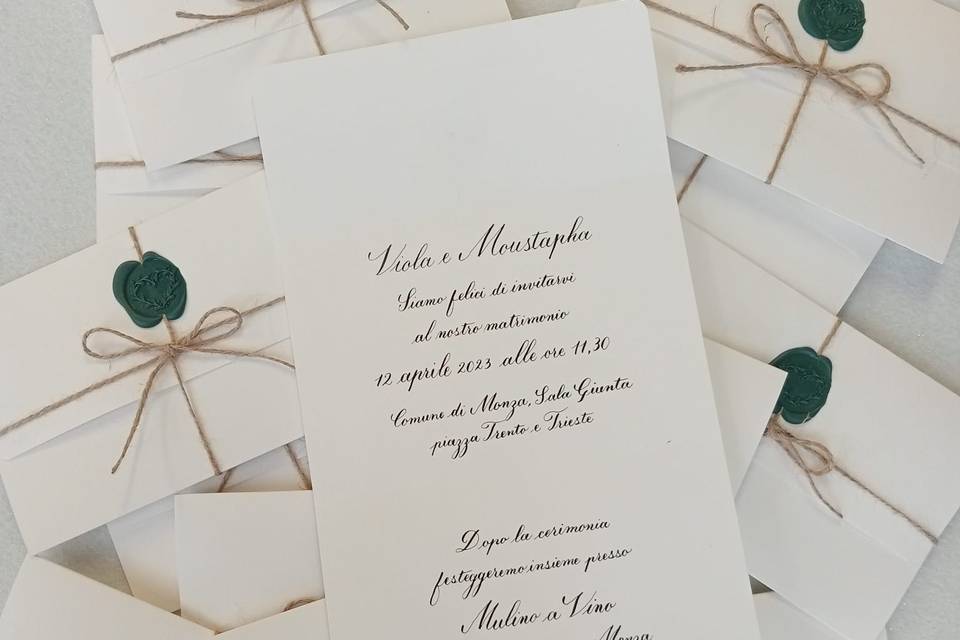 Viola e Moustapha
Siamo felici di invitarvi
al nostro matrimonio
12 aprile 2023 alle ore 11,30
Comune di Monza, Sala Giunta
piazza Trento e Trieste
Dopo la cerimonia
festeggeremo insieme presso
Mulino a Vino
Monza